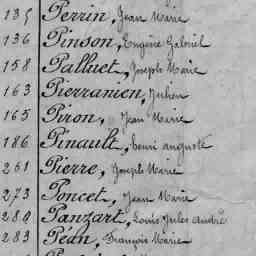 135 Perrin, Jean Marie
136 Pinson, Eugène Gabriel
158 Palluet, Joseph Marie
163 Pierranien, Julien
165 Piron, Jean Marie
186 Pinault, henri auguste
261 Pierre, Joseph Marie
273 Poncet, Jean Marie
280 Panzart, Louis Jules André
283 Péan, François Marie